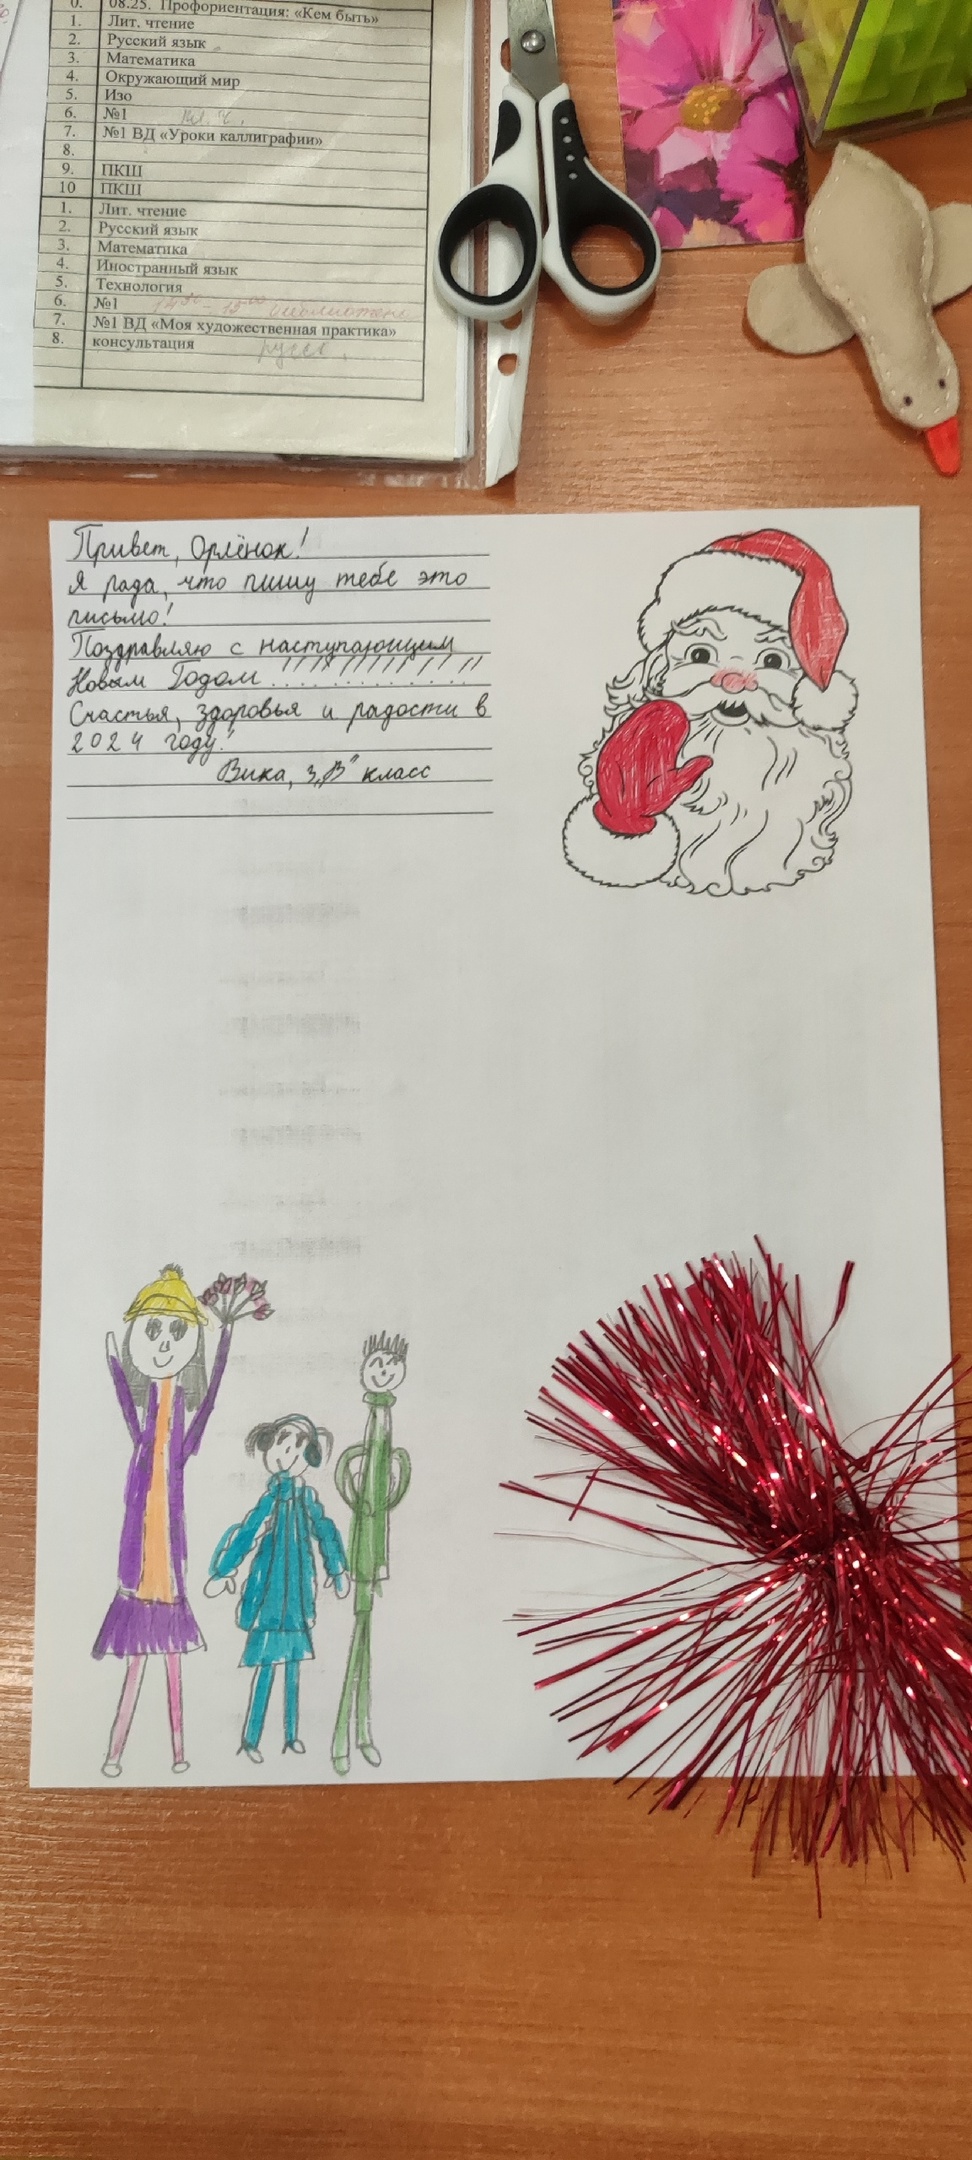 0. 08.25. Профориентация: «Кем быть»
1. Лит. чтение
2. Русский язык
3. Математика
4. Окружающий мир
5. Изо
6. №1 кл. ч.
7. №1 ВД «Уроки каллиграфии»
8.
9. ПКШ
10 ПКШ
1. Лит. чтение
2. Русский язык
3. Математика
4. Иностранный язык
5. Технология
6. №1 библиотека
7. №1 ВД «Моя художественная практика»
8. консультация русск.
Привет, Орлёнок!
Я рада, что пишу тебе это
письмо!
Поздравляю с наступающим
Новым Годом
Счастья, здоровья и радости в
2024 году!
Вика, 3„В" класс